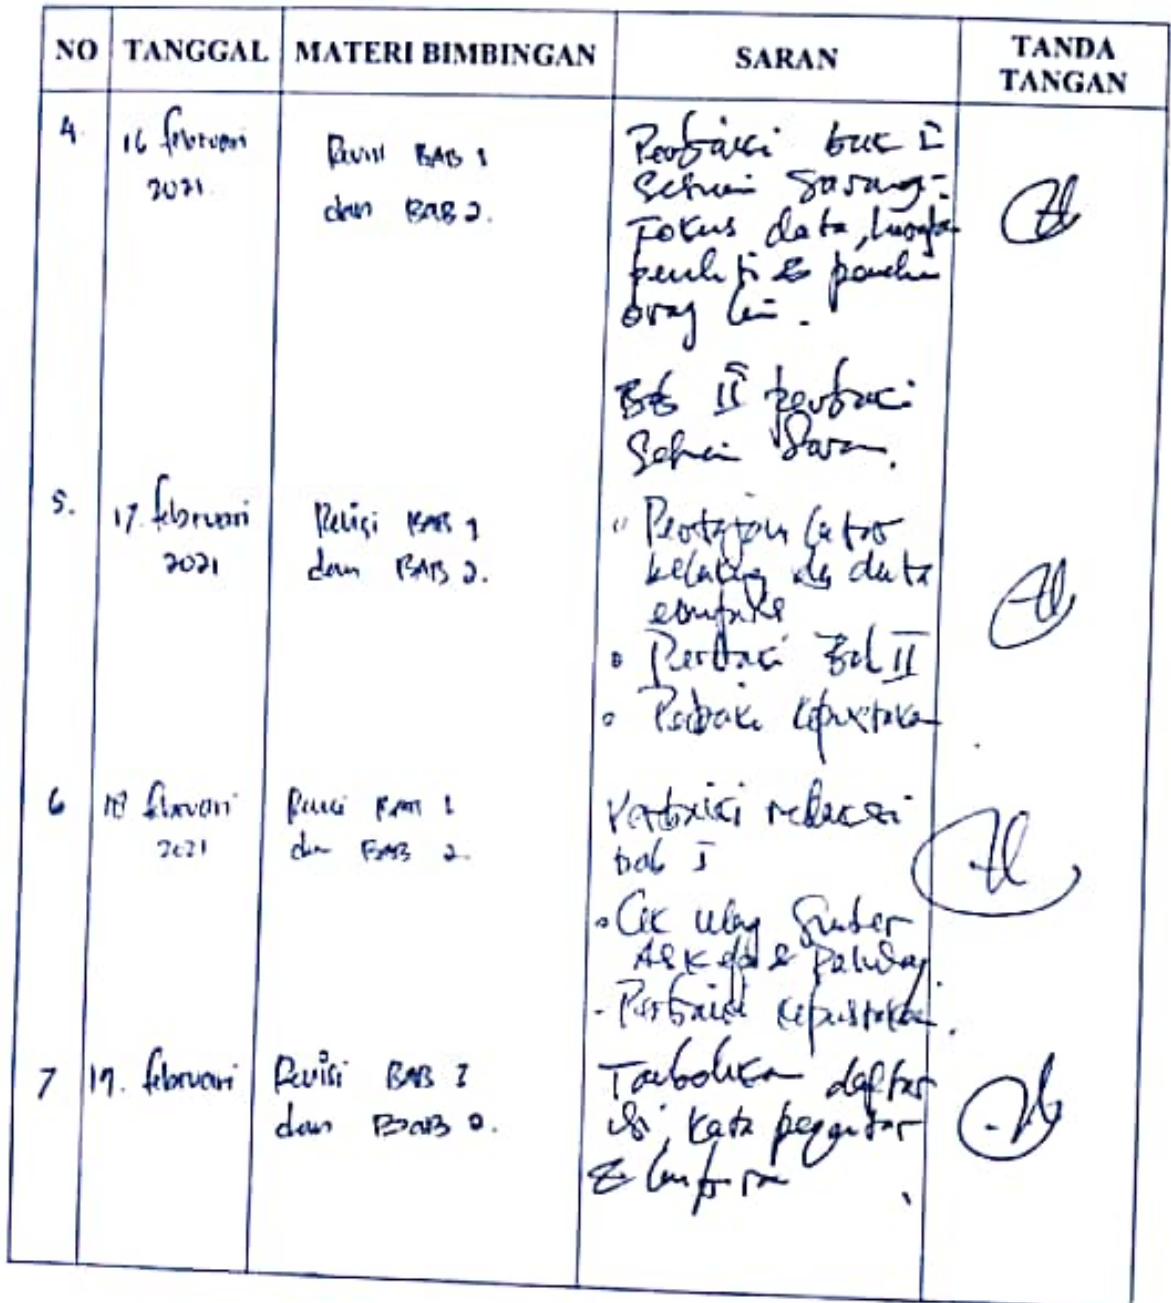 NO TANGGAL MATERI BIMBINGAN SARAN TANDA TANGAN
4. 16 februari 2021
Revisi BAB 1
dan BAB 2.
Perbaiki bab I
sesuai saran -
Fokus data,
peneliti & 
orang lain.
Bab II perbaiki
sesuai saran.
5. 17 februari 2021
Revisi BAB 1
dan BAB 2.
Pertajam latar
belakang dg data
Perbaiki Bab II
Perbaiki kepustakaan
6 18 februari 2021
Revisi BAB 1
dan BAB 2.
Perbaiki redaksi
bab I
Cek ulang sumber
- Perbaiki kepustakaan.
7 19. februari
Revisi BAB 1
dan BAB 2.
daftar
isi, kata pengantar
& lampiran